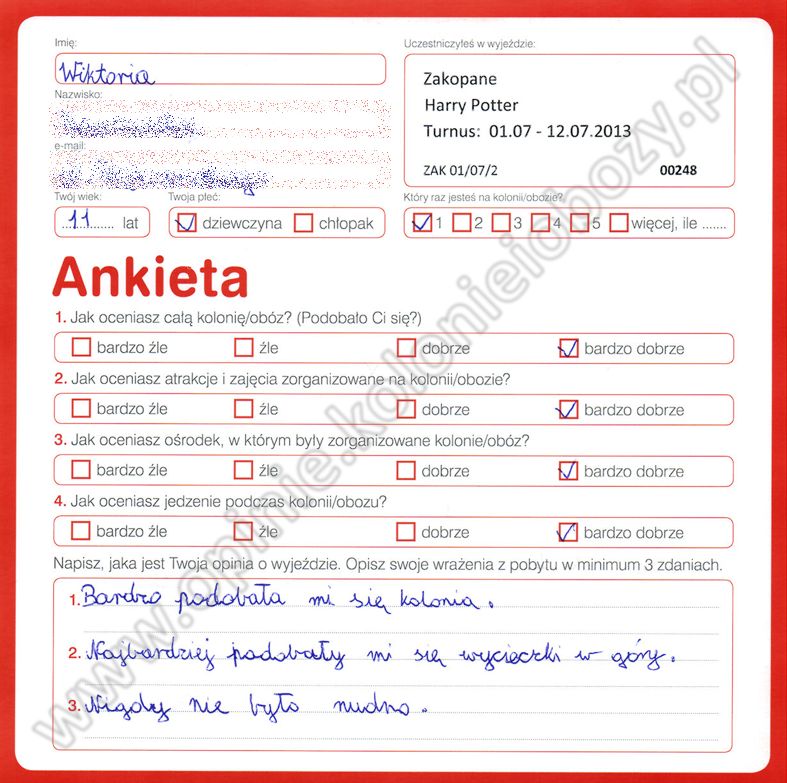 Imię:
Wiktoria
Nazwisko:
e-mail:
Twój wiek:
11 lat
Twoja płeć:
dziewczyna chłopak
Uczestniczyłeś w wyjeździe:
Zakopane
Harry Potter
Turnus: 01.07 - 12.07.2013
ZAK 01/07/2 00248
Który raz jesteś na kolonii/obozie?
1 2 3 4 5 więcej, ile .......
Ankieta
1. Jak oceniasz całą kolonię/obóz? (Podobało Ci się?)
bardzo źle źle dobrze bardzo dobrze
2. Jak oceniasz atrakcje i zajęcia zorganizowane na kolonii/obozie?
bardzo źle źle dobrze bardzo dobrze
3. Jak oceniasz ośrodek, w którym były zorganizowane kolonie/obóz?
bardzo źle źle dobrze bardzo dobrze
4. Jak oceniasz jedzenie podczas kolonii/obozu?
bardzo źle źle dobrze bardzo dobrze
Napisz, jaka jest Twoja opinia o wyjeździe. Opisz swoje wrażenia z pobytu w minimum 3 zdaniach.
1. Bardzo podobała mi się kolonia.
2. Najbardziej podobały mi się wycieczki w góry.
3. Nigdy nie było nudno.
www.opinie.kolonieiobozy.pl